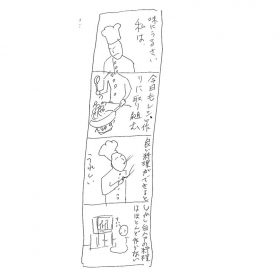 味にうるさい
私は
今日もレシピ作
りに取り組む
良い料理ができると
うれしい
しかし自分の料理
はほとんど作らない